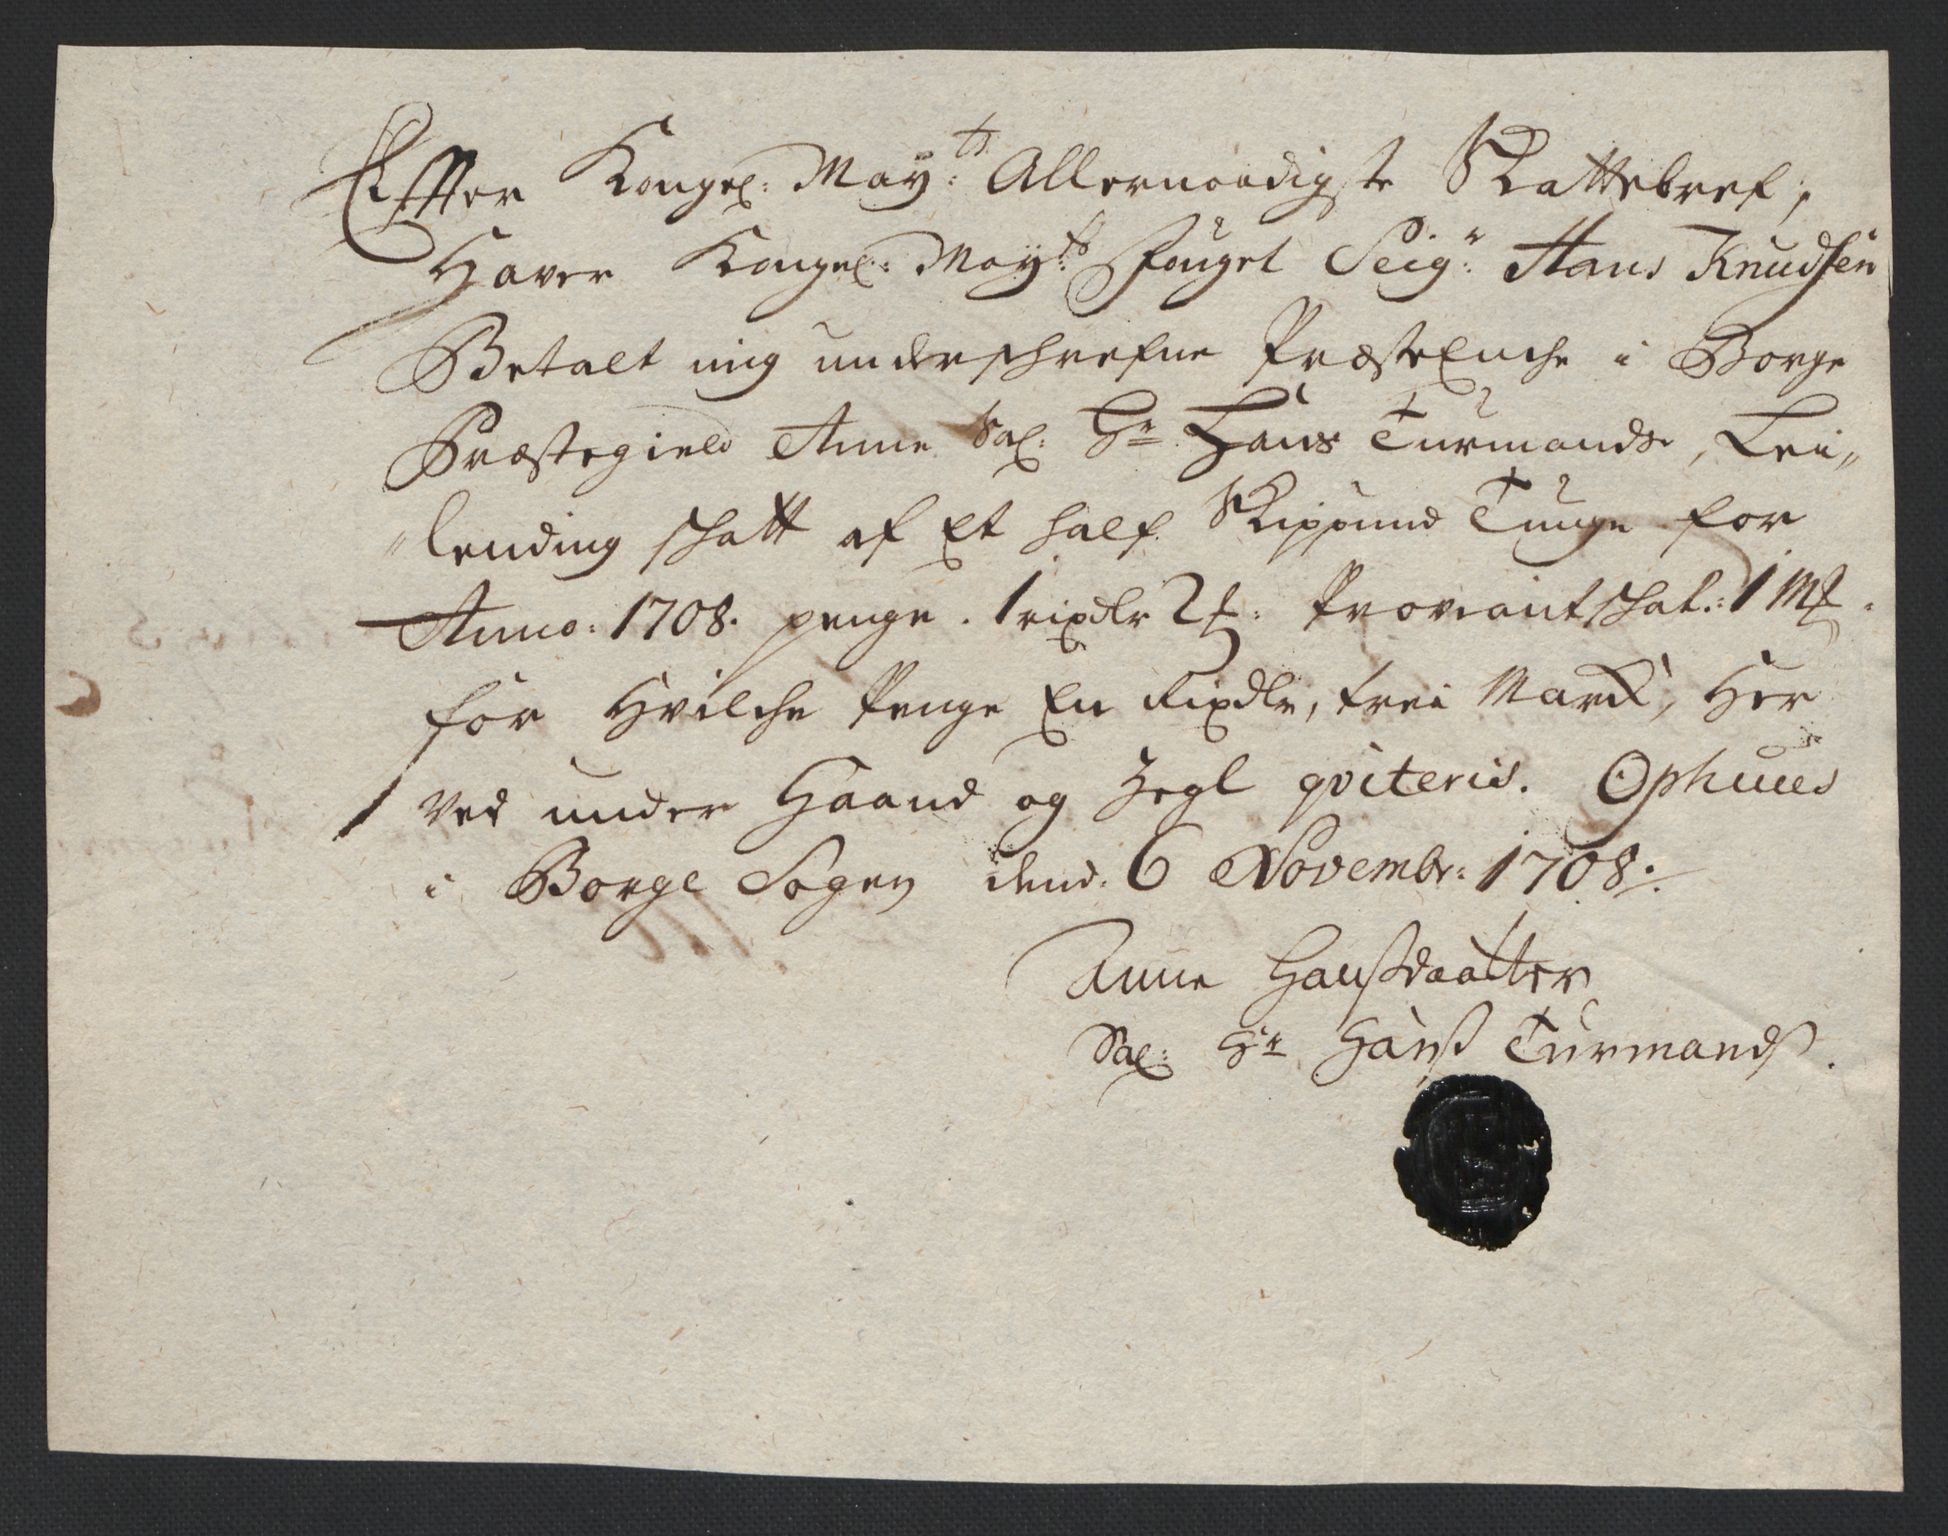 Effter Kongel: May:ts Allernaadigste Skattebref,
Haver Kongel: May:ts Fouget Seig:r Hans Knudsen
Betalt mig underschrefne Præsteenche i Borge
Præstegield Anne Sal: Hr Hans Turmands, Lei„
„lending schatt af Et half Skippund Tunge for
Anno: 1708. penge. 1 rixdlr 2 ß: Proviantschat: 1 Mß.
for Hvilche Penge En Rixdlr, trei Marck, Her
Ved under Haand og Zegl qviteris. Ophuus
i Borge Sogen dend. 6 Novembr: 1708.
Anne Hanßdaatter
Sal: Hr Hanß Turmandß.